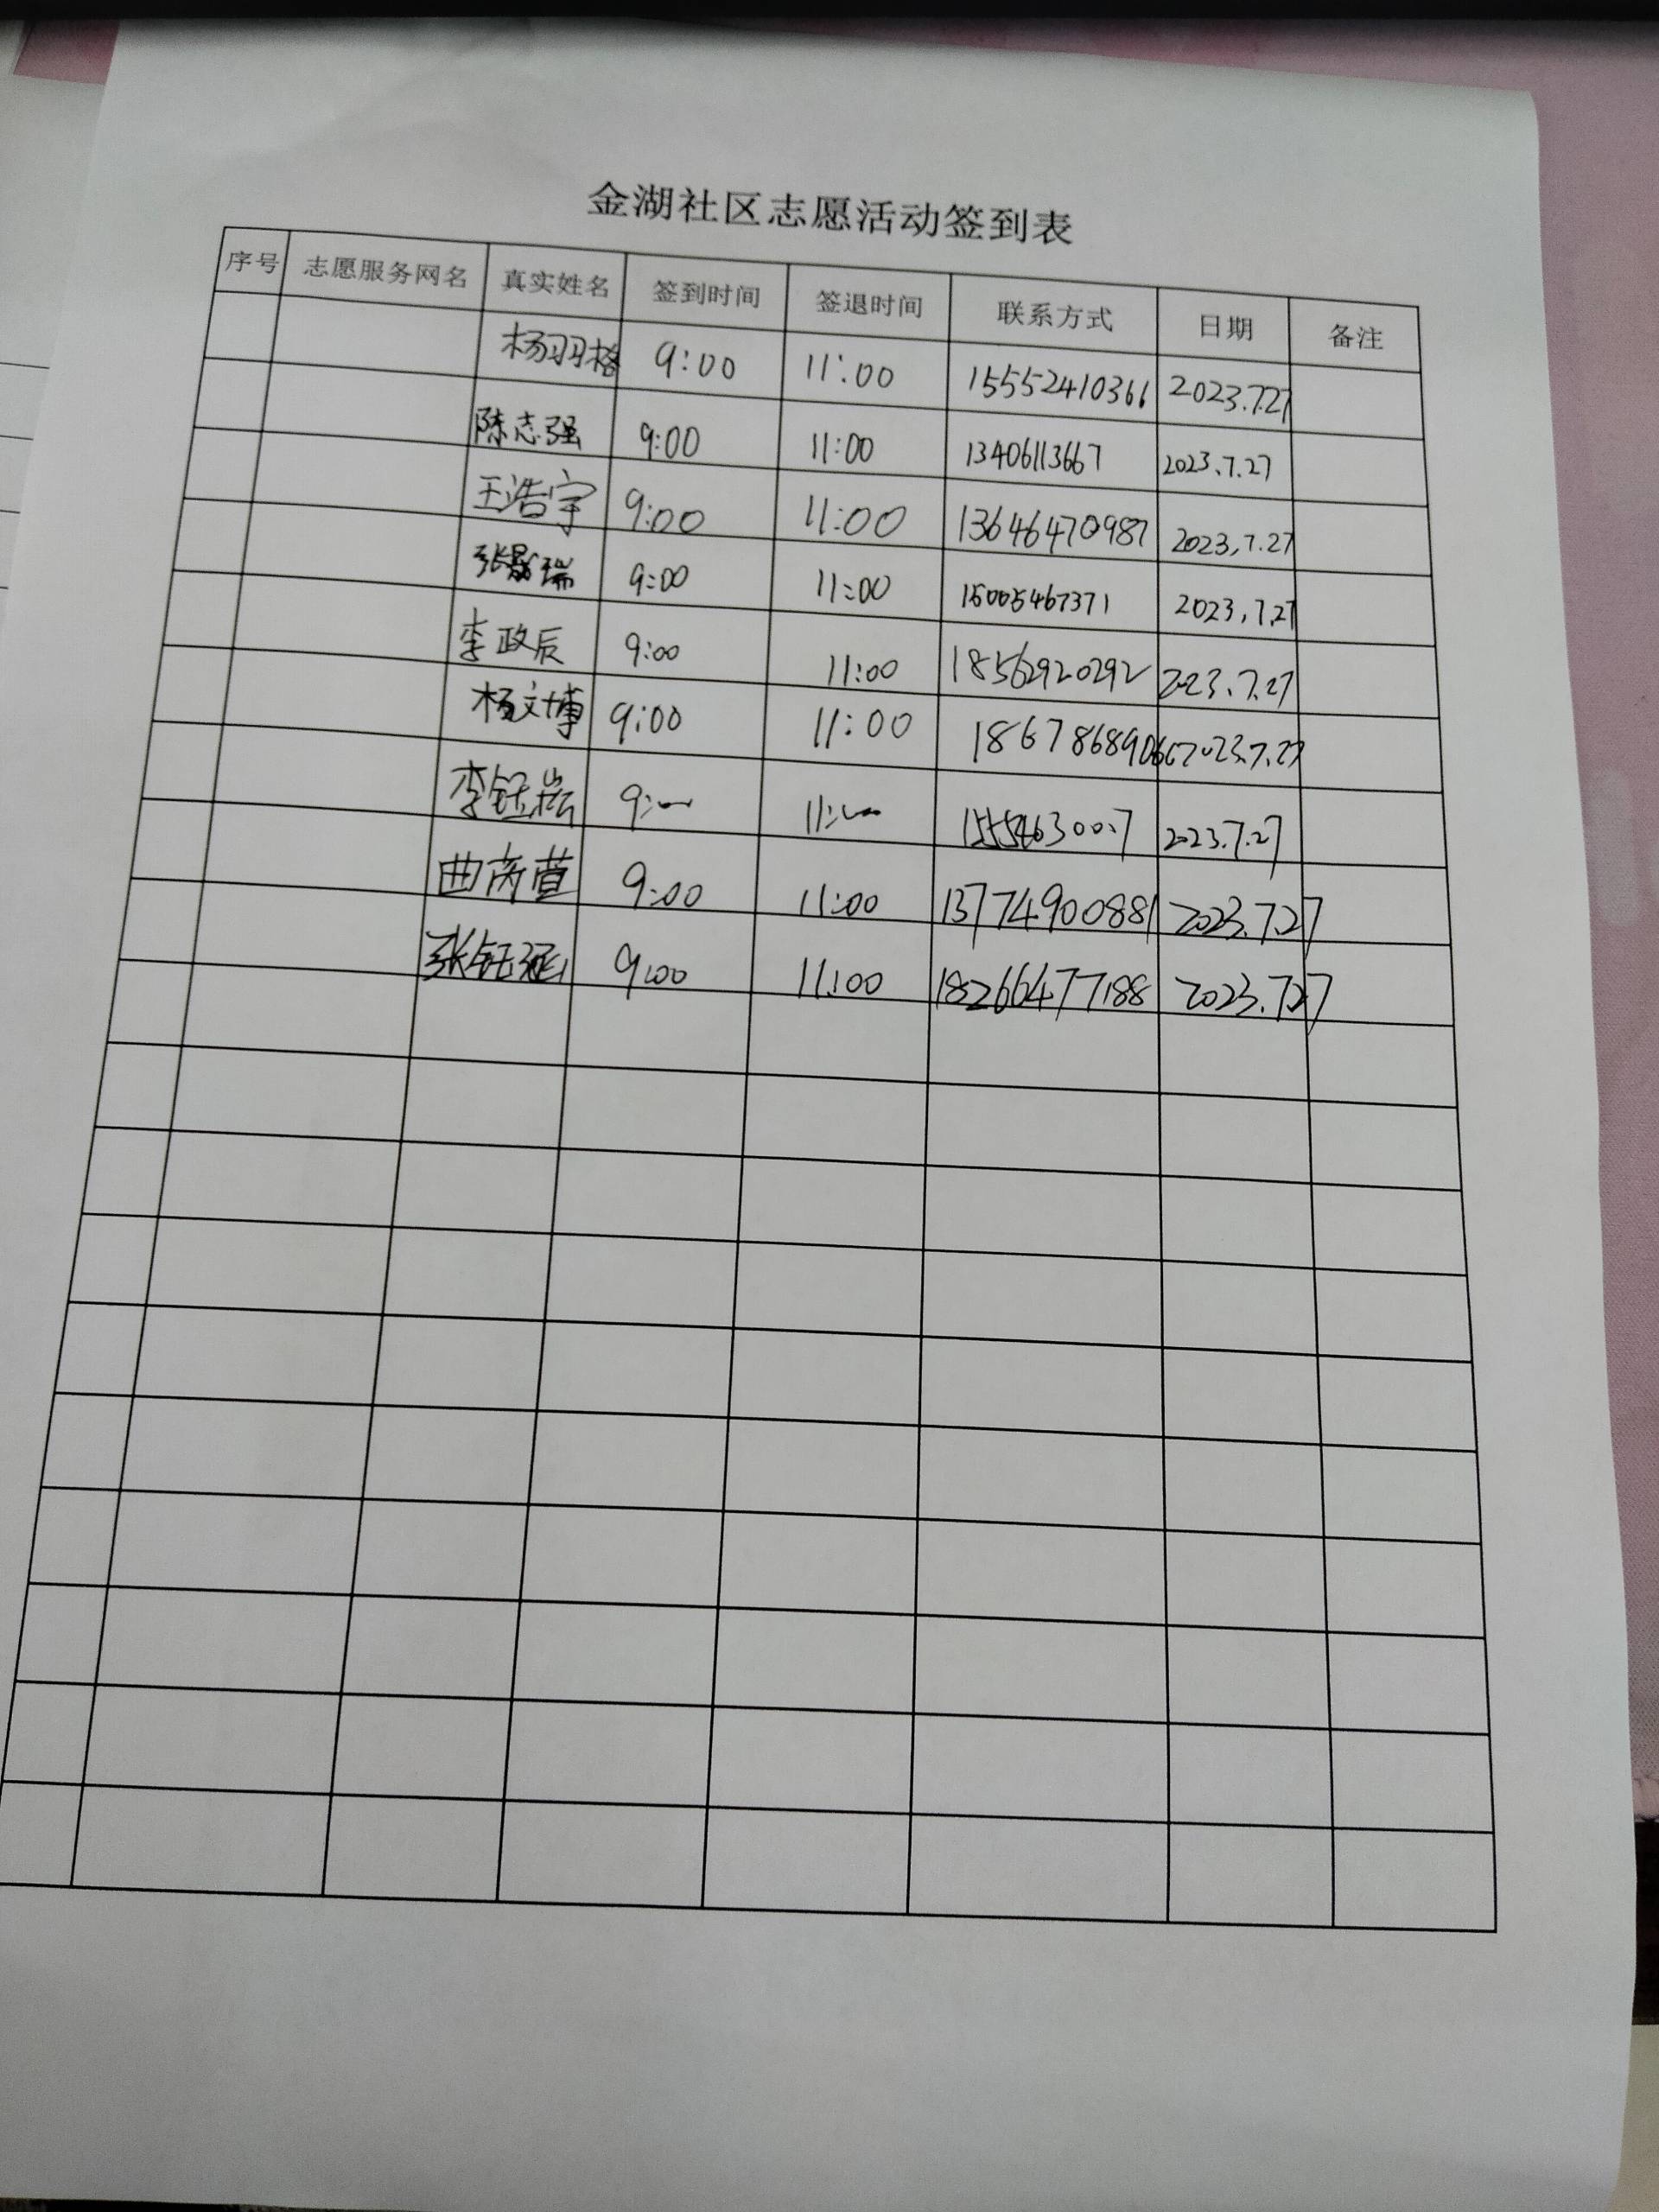 金湖社区志愿活动签到表
序号 志愿服务网名 真实姓名 签到时间 签退时间 联系方式 日期 备注
杨羽格 9:00 11:00 15552410366 2023.7.27
陈志强 9:00 11:00 13406113667 2023.7.27
王浩宇 9:00 11:00 13646470987 2023.7.27
9:00 11:00 15005467371 2023.7.27
李政辰 9:00 11:00 18562920292 2023.7.27
杨文博 9:00 11:00 2023.7.27
李钰崧 9:00 11:00 2023.7.27
曲芮萱 9:00 11:00 13774900881 2023.7.27
9:00 11:00 18266477188 2023.7.27